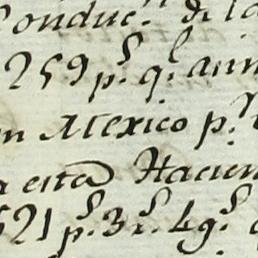 Conduc.ⁿ de la
259 p.ˢ q.ᵉ aun
en Mexico p.ʳ
a esta Hacien
521 p.ˢ 3 r.ˢ 4 g.ˢ